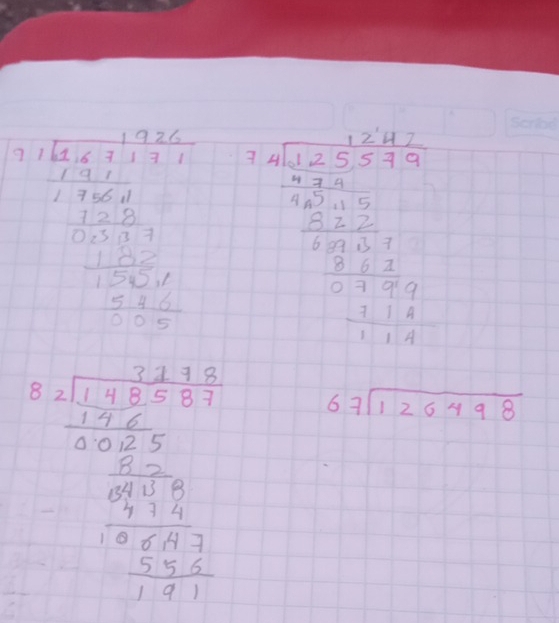 1926
91 167171
191
175611
728
02337
182
15451
546
005
1242
74 125579
474
45115
822
689137
863
0799
714
114
3198
82 148587
146
00125
82
134138
474
10647
556
191
67 126498